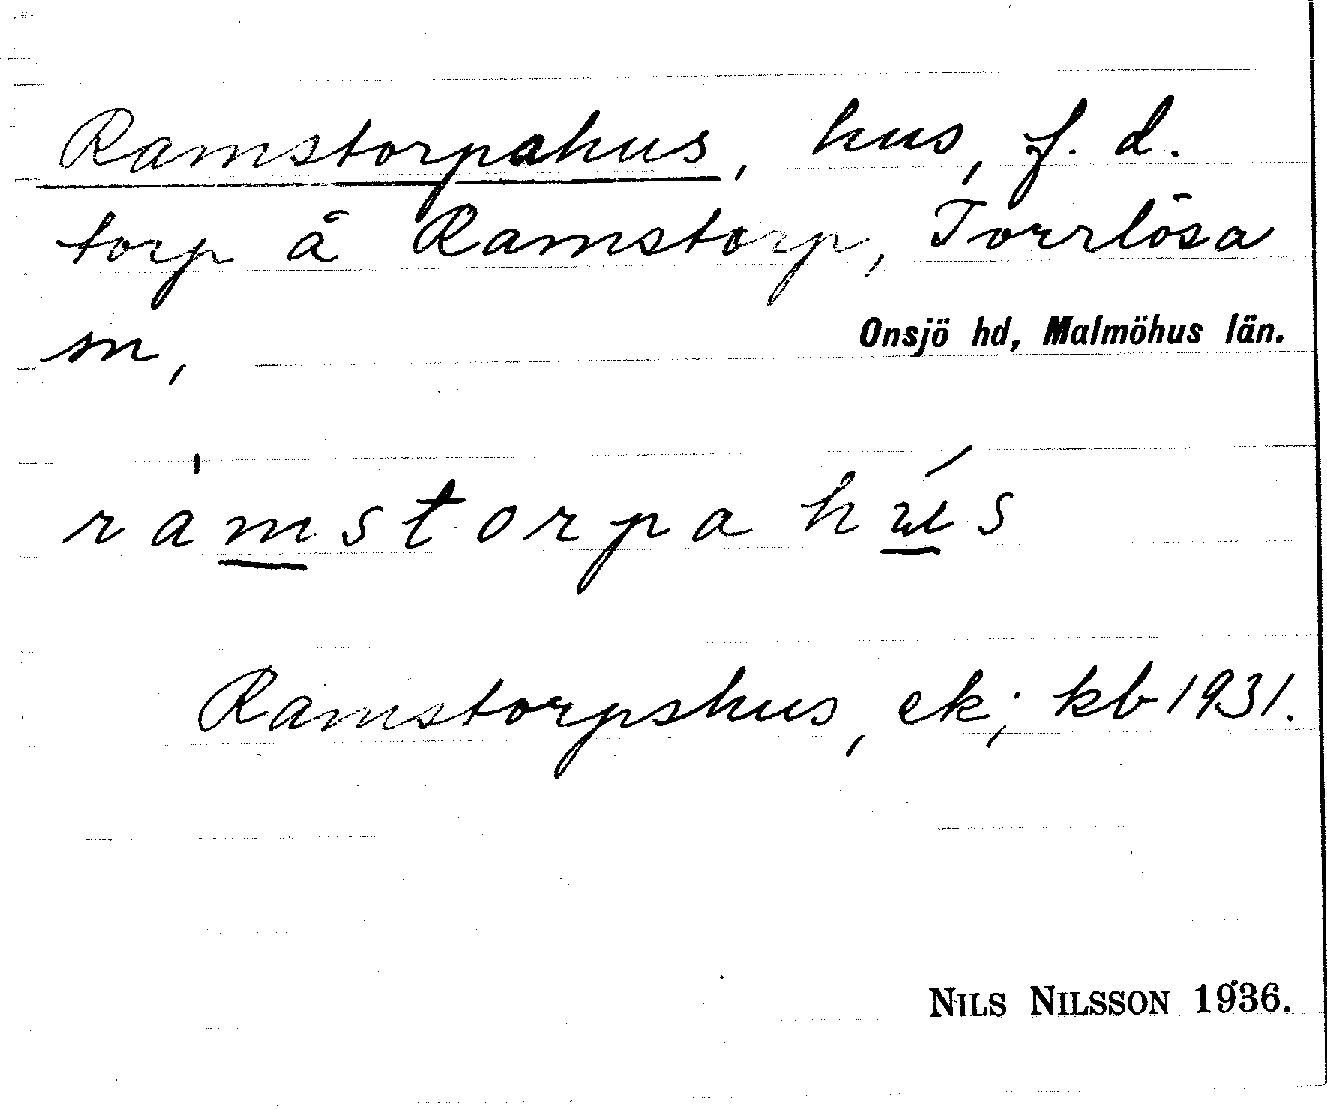 Ramstorpahus, hus, f. d.
torp å Ramstorp, Torrlösa
sn, Onsjö hd, Malmöhus län.
ramstorpa hús
Ramstorpshus, ek; kb 1931.
NILS NILSSON 1936.